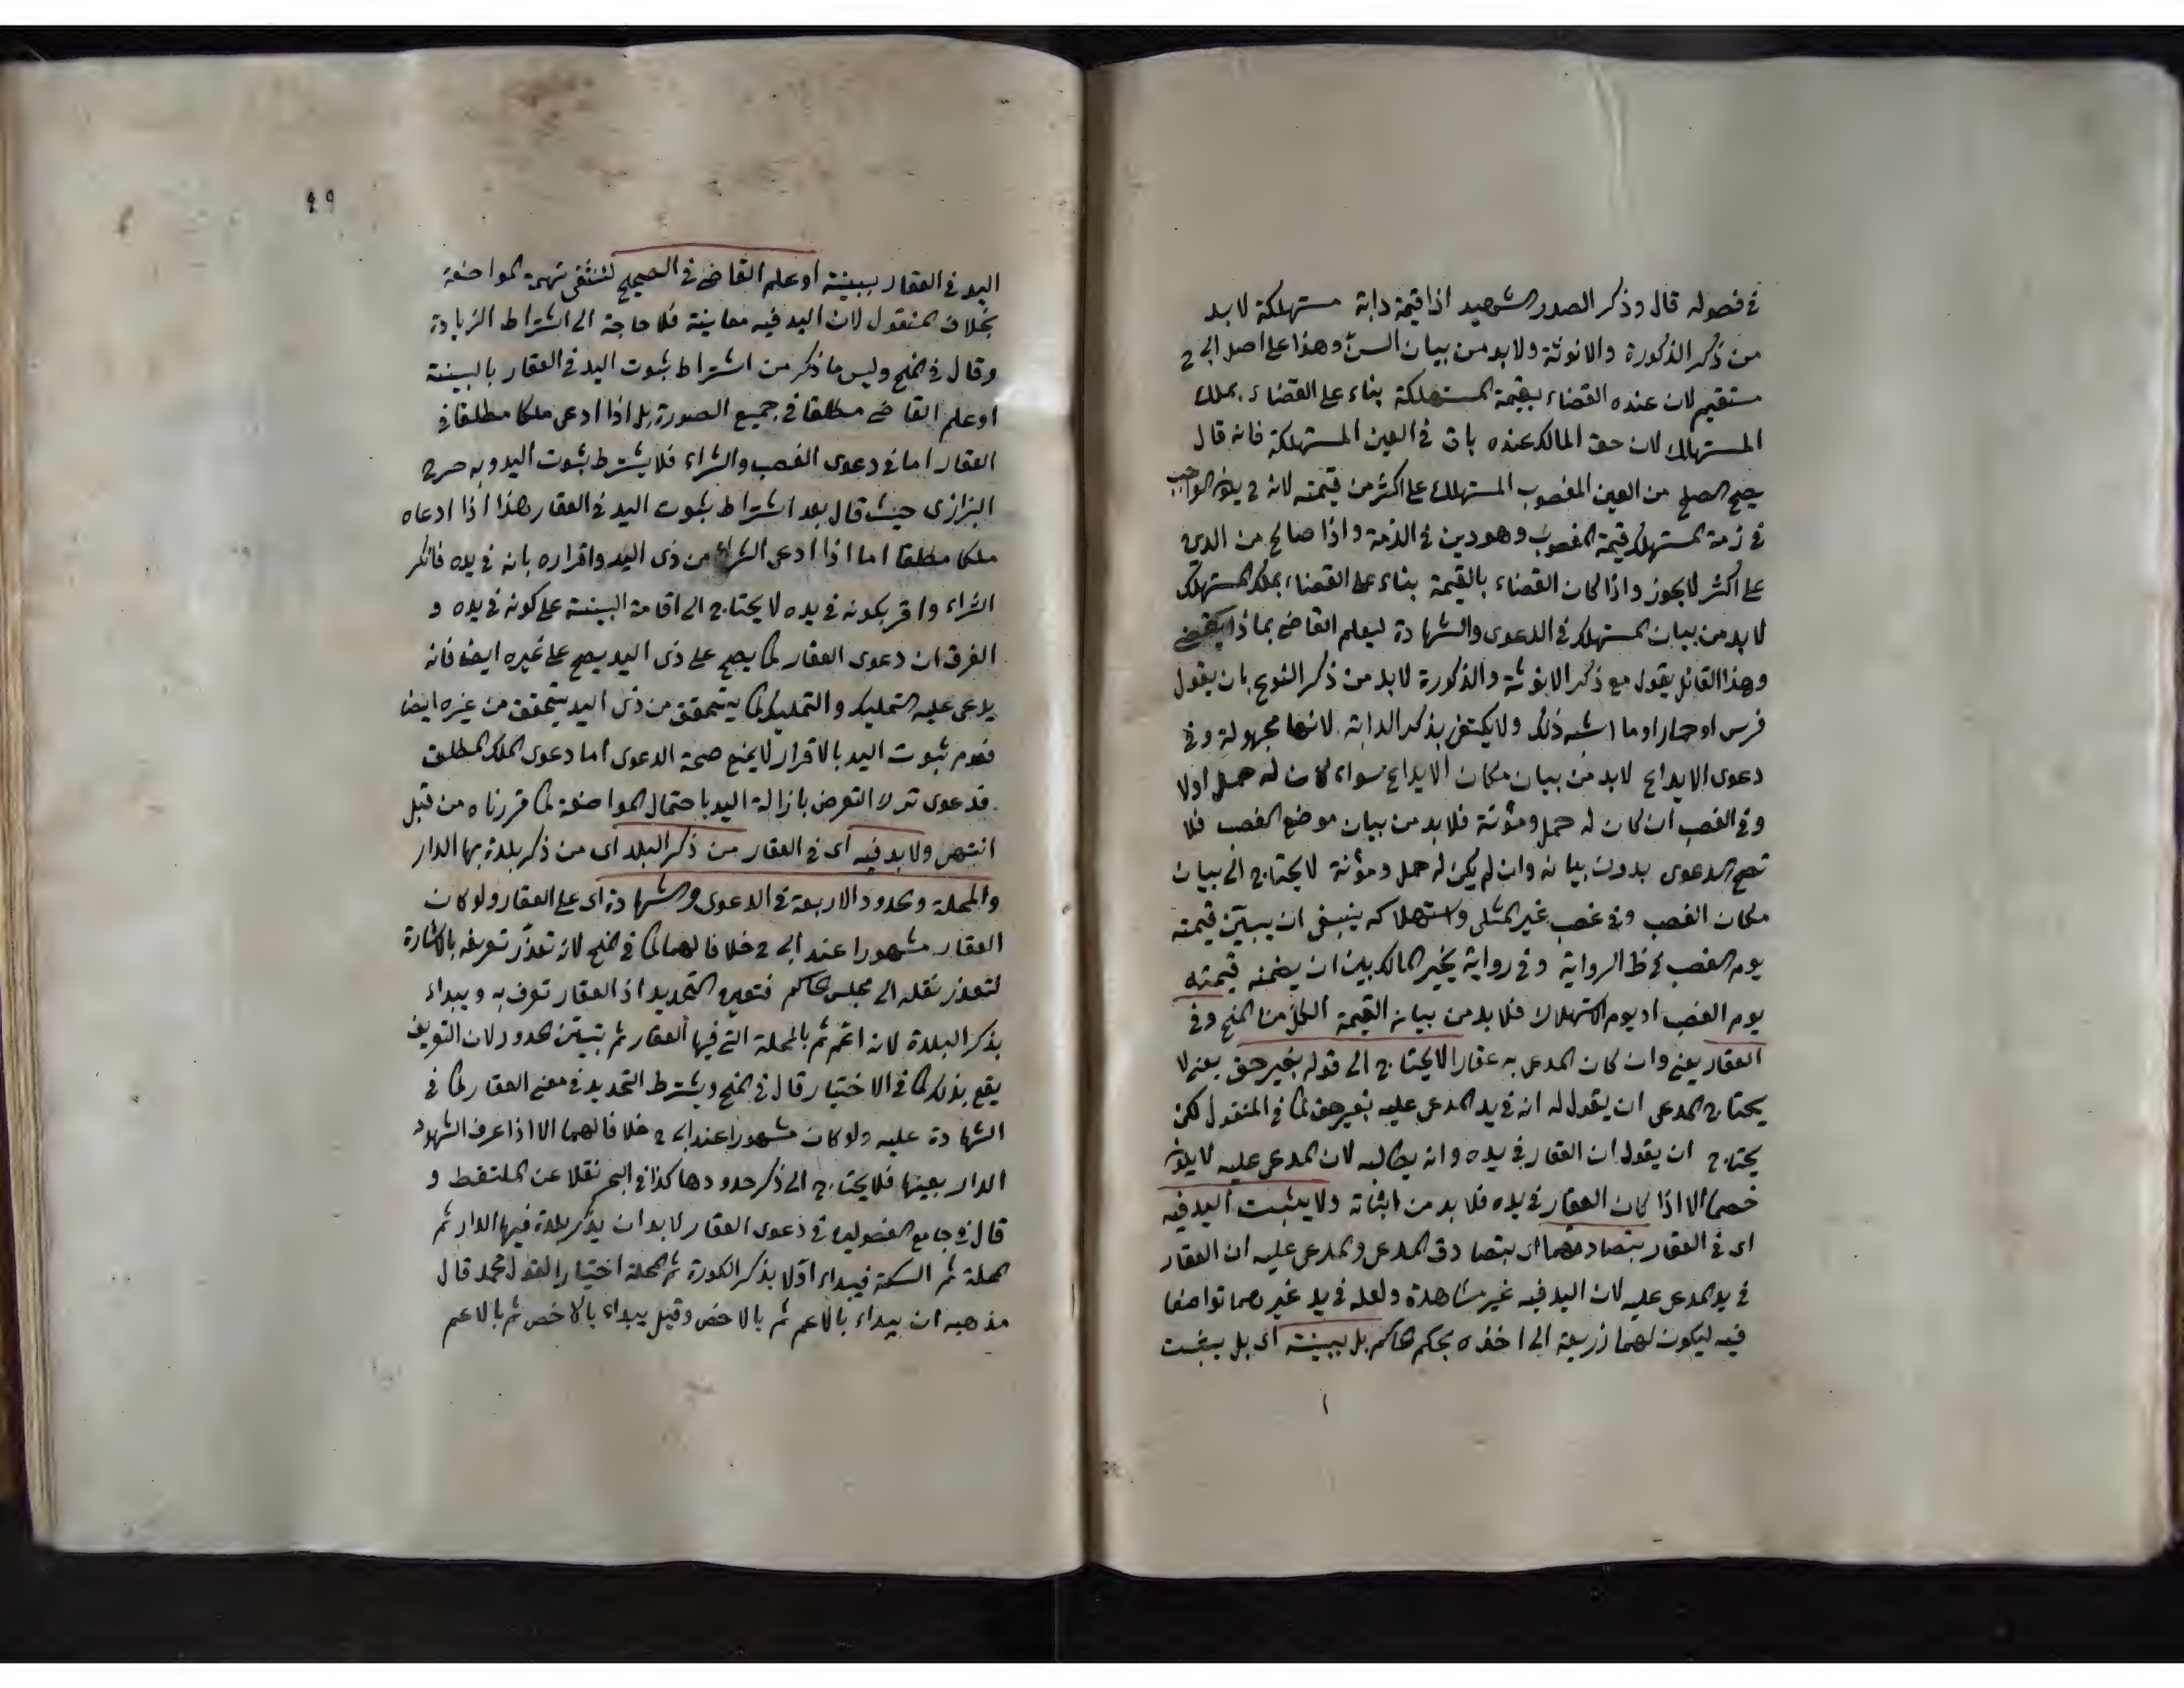 في فصوله قال وذكر الصدر الشهيد اذا قيمة دابة مستهلكة لا بد
من ذكر الذكورة والانوثة ولا بد من بيان السن وهذا على اصل ابي ح
مستقيم لان عنده القضاء بقيمة المستهلكة بناء على القضاء بملك
المستهلك لان حق المالك عنده باق في العين المستهلكة فانه قال
يصح الصلح من العين المغصوب المستهلك على اكثر من قيمته لانه ح يكون الواجب
في ذمة المستهلك قيمة المغصوب وهو دين في الذمة واذا صالح من الدين
على اكثر لا يجوز واذا كان القضاء بالقيمة بناء على القضاء بملك المستهلك
لا بد من بيان المستهلك في الدعوى والشهادة ليعلم القاضي بماذا يقضي
وهذا القائل يقول مع ذكر الانوثة والذكورة لا بد من ذكر النوع بان يقول
فرس او حمار او ما اشبه ذلك ولا يكتفى بذكر الدابة لانها مجهولة وفي
دعوى الايداع لا بد من بيان مكان الايداع سواء كان له حمل اولا
وفي الغصب ان كان له حمل ومؤنة فلا بد من بيان موضع الغصب فلا
تصح الدعوى بدون بيانه وان لم يكن له حمل ومؤنة لا يحتاج الى بيان
مكان الغصب وفي غصب غير المثلى واستهلاكه ينبغى ان يبين قيمته
يوم الغصب في ظ الرواية وفي رواية يخير المالك بين ان يضمنه قيمته
يوم الغصب او يوم الاستهلاك فلا بد من بيان القيمة الكل من المنح وفي
العقار يعني وان كان المدعى به عقارا لا يحتاج الى قوله بغير حق يعني لا
يحتاج المدعى ان يقول له انه في يد المدعى عليه بغير حق كما في المنقول لكن
يحتاج ان يقول ان العقار في يده وانه يطالبه لان المدعى عليه لا يكون
خصما الا اذا كان العقار في يده فلا بد من اثباته ولا يثبت اليد فيه
اى في العقار بتصادقهما اى بتصادق المدعى والمدعى عليه ان العقار
في يد المدعى عليه لان اليد فيه غير مشاهدة ولعله في يد غيرهما تواضعا
فيه ليكون لهما ذريعة الى اخذه بحكم الحاكم بل ببينة اى بل يثبت
٤٩
اليد في العقار ببينة او علم القاضي في الصحيح لتنتفى تهمة المواضعة
بخلاف المنقول لان اليد فيه معاينة فلا حاجة الى اشتراط الزيادة
وقال في المنح وليس ما ذكر من اشتراط ثبوت اليد في العقار بالبينة
او علم القاضي مطلقا في جميع الصورة بل اذا ادعى ملكا مطلقا في
العقار اما في دعوى الغصب والشراء فلا يشترط ثبوت اليد وبه صرح
البزازى حيث قال بعد اشتراط ثبوت اليد في العقار هذا اذا ادعاه
ملكا مطلقا اما اذا ادعى الشراء من ذى اليد واقراره بانه في يده فانكر
الشراء واقر بكونه في يده لا يحتاج الى اقامة البينة على كونه في يده و
الفرق ان دعوى العقار كما يصح على ذى اليد يصح على غيره ايضا فانه
يدعى عليه التمليك والتمليك كما يتحقق من ذى اليد يتحقق من غيره ايضا
فعدم ثبوت اليد بالاقرار لا يمنع صحة الدعوى اما دعوى الملك المطلق
فدعوى ترك التعرض بازالة اليد باحتمال المواضعة كما قررناه من قبل
انتهى ولا بد فيه اى في العقار من ذكر البلد اى من ذكر بلدة بها الدار
والمحلة والحدود الاربعة في الدعوى والشهادة اى على العقار ولو كان
العقار مشهورا عند ابى ح خلافا لهما كما في المنح لانه تعذر تعريفه بالاشارة
لتعذر نقله الى مجلس الحاكم فتعين التحديد اذ العقار تعرف به ويبداء
بذكر البلدة لانه اعم ثم بالمحلة التى فيها العقار ثم تبيين الحدود لان التعريف
يقع بذلك كما في الاختيار قال في المنح ويشترط التحديد في معنى العقار كما في
الشهادة عليه ولو كان مشهورا عند ابى ح خلافا لهما الا اذا عرف الشهود
الدار بعينها فلا يحتاج الى ذكر حدودها كذا في البحر نقلا عن الملتقط و
قال في جامع الفصولين في دعوى العقار لا بد ان يذكر بلدة فيها الدار ثم
المحلة ثم السكة فيبداء اولا بذكر الكورة ثم المحلة اختيارا لقول محمد قال
مذهبه ان يبداء بالاعم ثم بالاخص وقيل يبداء بالاخص ثم بالاعم